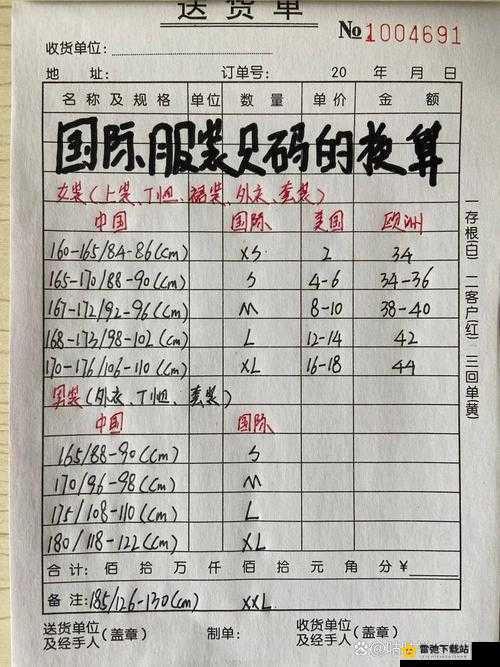 送货单
№1004691
收货单位：
地 址： 订单号： 20 年 月 日
名称及规格 单位 数量 单价 金额
国际服装尺码的换算
女装(上装、T恤、裙装、外衣、套装)
中国 国际 美国 欧洲
160-165/84-86(cm) XS 2 34
165-170/88-90(cm) S 4-6 34-36
167-172/92-96(cm) M 8-10 38-40
168-173/98-102(cm) L 12-14 42
170-176/106-110(cm) XL 16-18 44
男装(外衣、T恤、套装)
中国 国际
165/88-90(cm) S
170/96-98(cm) M
175/108-110(cm) L
180/118-122(cm) XL
合计： 佰 拾 万 仟 佰 拾 元 角 分 ¥
备注：185/126-130(cm) XXL
送货单位及经手人(盖章) 制单： 收货单位及经手人(盖章)
一存根(白) 二客户红) 三回单(黄)
雷弛下载站